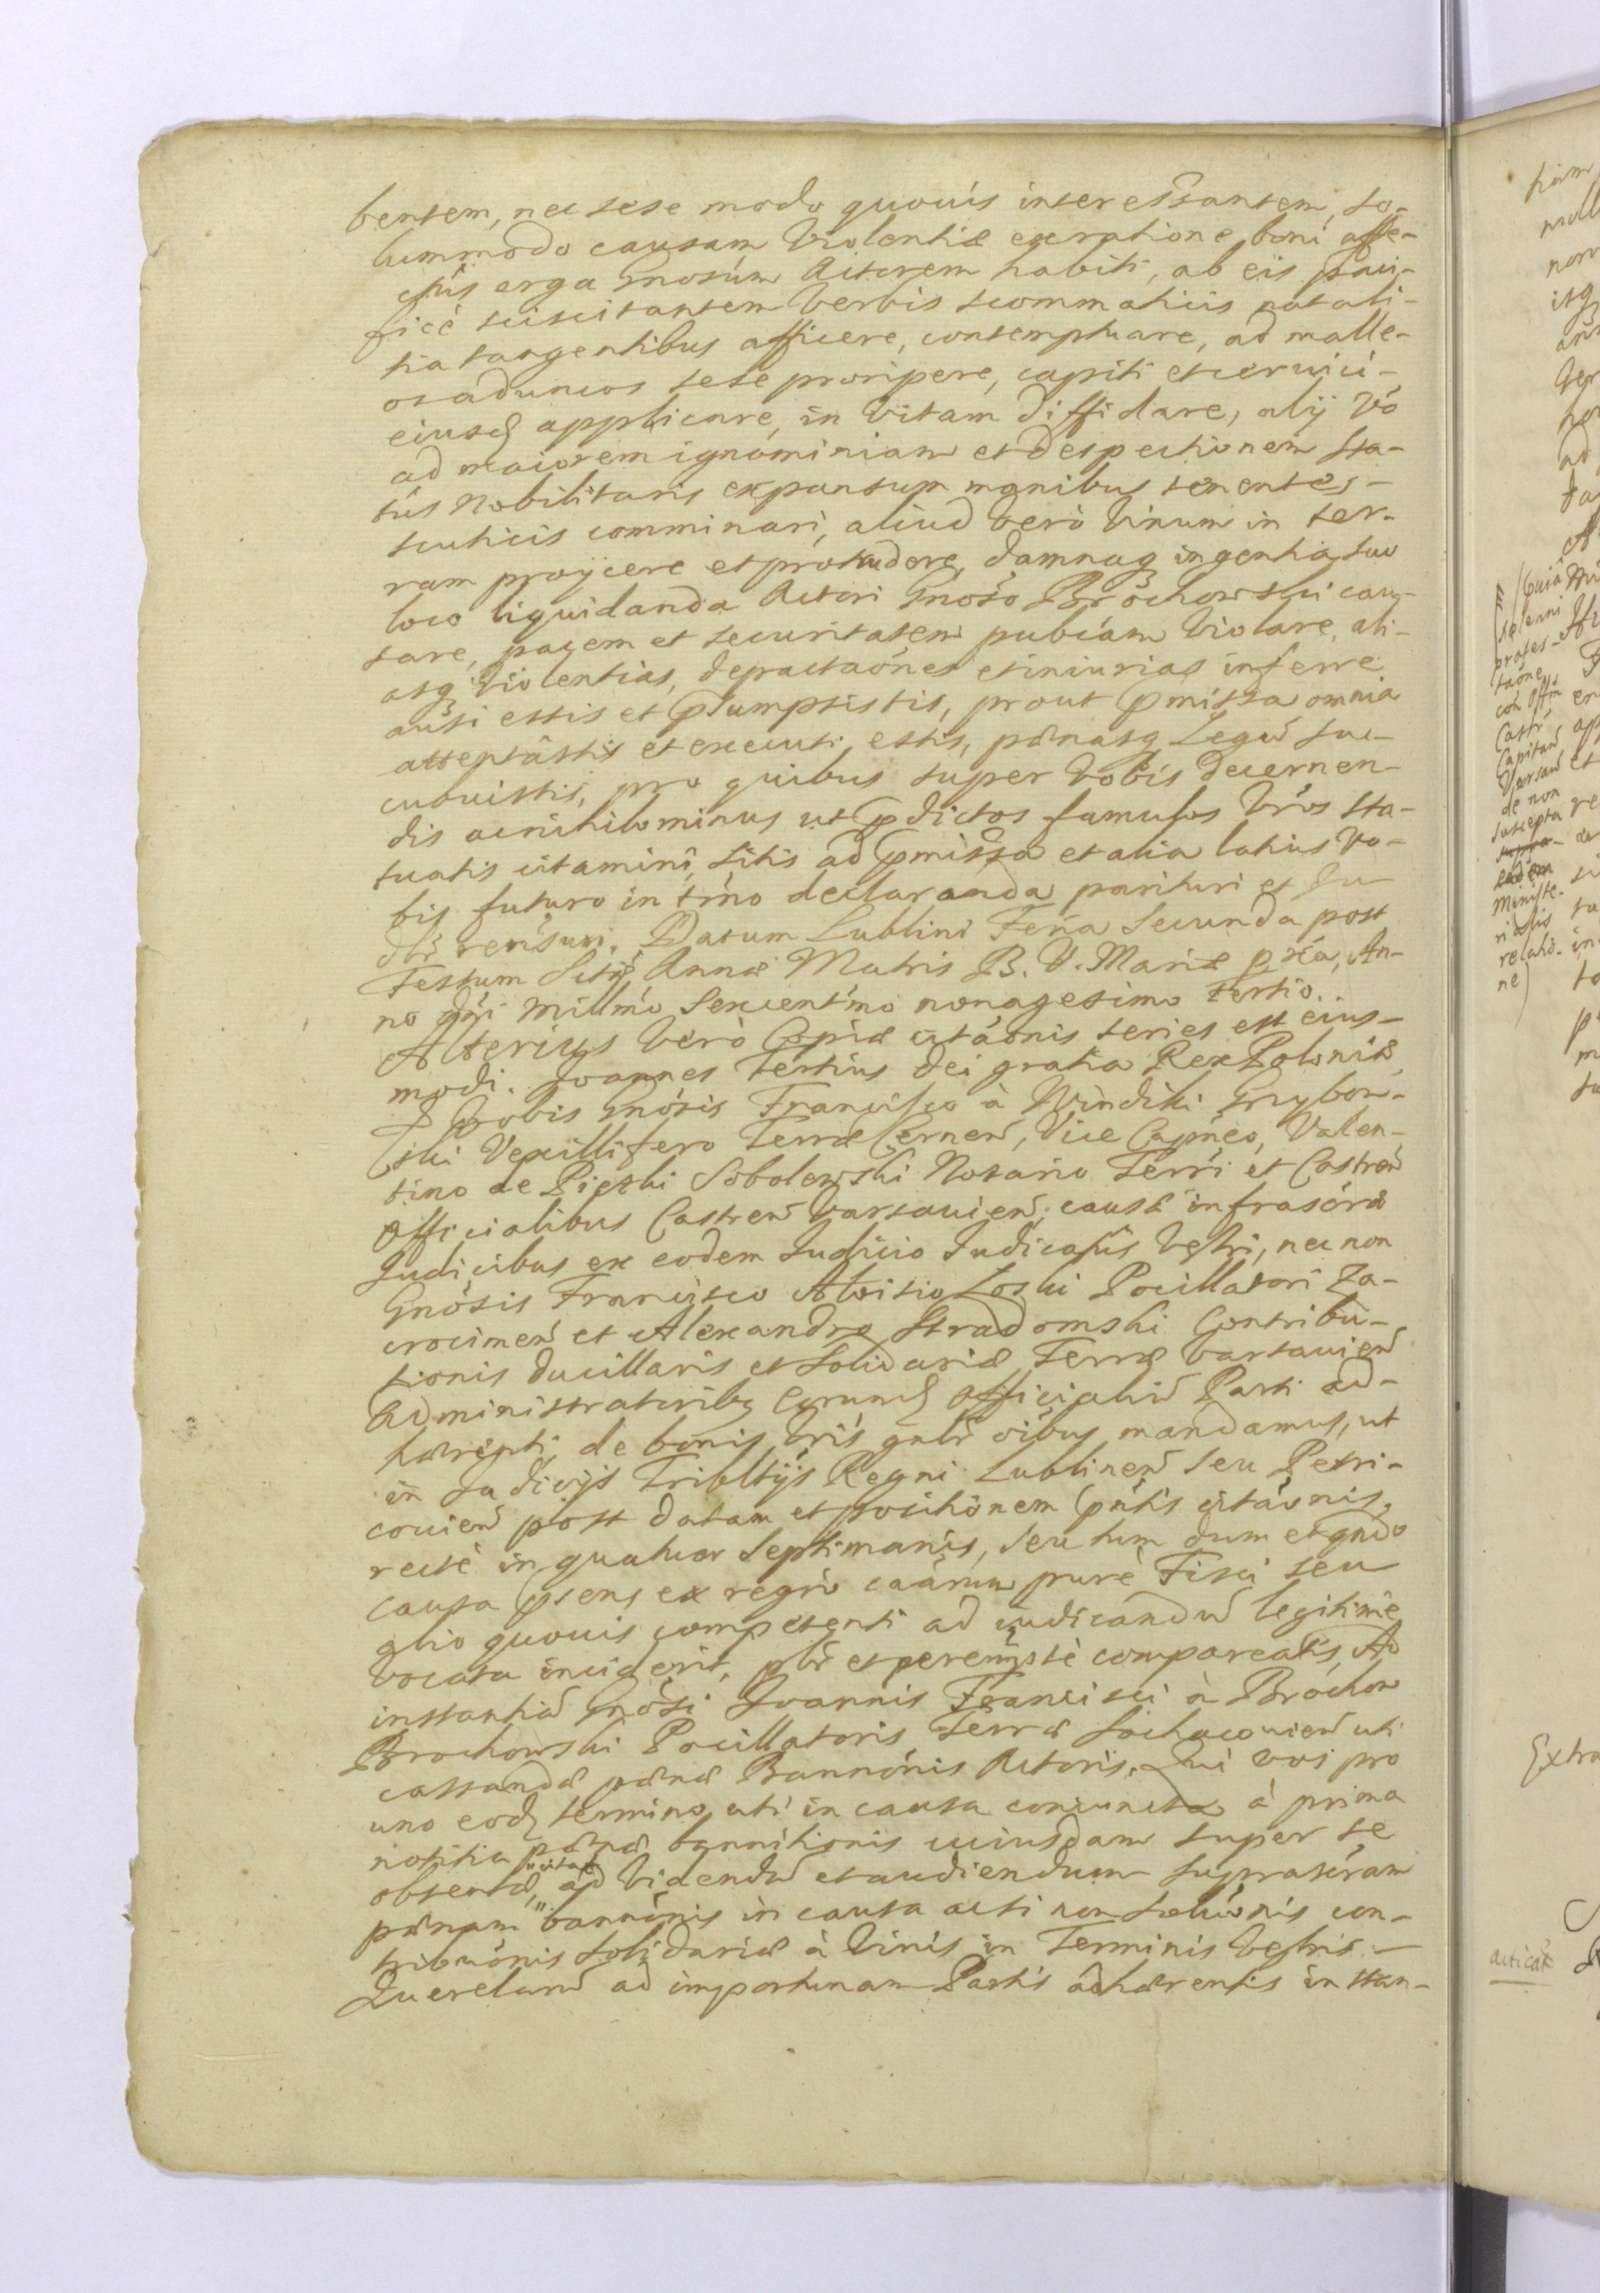 bentem, nec sese modo quovis interessantem, so-
lummodo causam violentiæ ex ratione boni affe-
ctus erga Gnosum Actorem habiti, ab eis paci-
ficè sciscitantem verbis scommaticis natali-
tia tangentibus afficere, contemptuare, ad malle-
os aduncos sese proripere, capiti et cervici
eiusq applicare, in vitam diffidare, alij vo
ad maiorem ignominiam et despectionem sta-
tûs Nobilitaris expansum manibus tenentes
scuticis comminari, aliud verò vinum in ter-
ram proijcere et protrudere, damnaq ingentia suo
loco liquidanda Actori Gnoso Brochowski cau-
sare, pacem et securitatem pubcam violare, ali-
asq violentias, depactaones et iniurias inferre
ausi estis et psumpsistis, prout pmissa omnia
attentâstis et executi estis, pænasq Legu suc-
cubuistis, pro quibus super vobis decernen-
dis ac nihilominus ut pdictos famulos vros sta-
tuatis citamini, sitis ad pmissa et alia latius vo-
bis futuro in tmo declaranda parituri et Iu-
dlr rensuri. Datum Lublini Feria Secunda post
Festum Sctæ Annæ Matris B. V. Mariæ pxa, An-
no dni Millmo Sexcentmo nonagesimo tertio.
Alterius verò Copiæ citaonis series est eius-
modi. Joannes tertius Dei gratia Rex Poloniæ
Vobis Gnosis Francisco à Windiki Grzybow-
ski Vexillifero Terræ Cernen, Vice Capneo, Valen-
tino de Pieczki Sobolewski Notario Terri et Castren
Officialibus Castren Varsavien, causæ infrascræ
Judicibus ex eodem Judicio Judicatûs Vestri, nec non
Gnosis Francisco Aloisio Loski Pocillatori Za-
crocimen et Alexandro Stradomski Contribu-
tionis Ducillaris et Solidariæ Terræ Varsavien
Administratoribq eorund Officialiu Parti ad-
hærenti, de bonis vris gnlr oibus mandamus, ut
in Judicijs Tribltijs Regni Lublinen seu Petri-
covien post datam et positionem pntis citaonis,
rectè in quatuor Septimanis, seu tum dum et qndo
causa psens ex regro caarum purè Fisci seu
alio quovis competenti ad iudicandu legitimè
vocata inciderit, plr et peremptè compareatis, Ad
instantia Gnosi Joannis Francisci à Brochow
Brochowski Pocillatoris Terræ Sochaczovien uti
cassandæ pænæ Bannonis Actoris. Qui vos pro
uno eod termino uti in causa coniuncta à prima
notitia pænæ bannitionis cuiusdam super se
obtentæ, citat ad videndu et audiendum suprascram
pænam bannonis in causa acti non soluonis con-
tribuonis Solidariæ à Vinis in Terminis Vestris
Querelaru ad importunam Partis adhærentis instan-